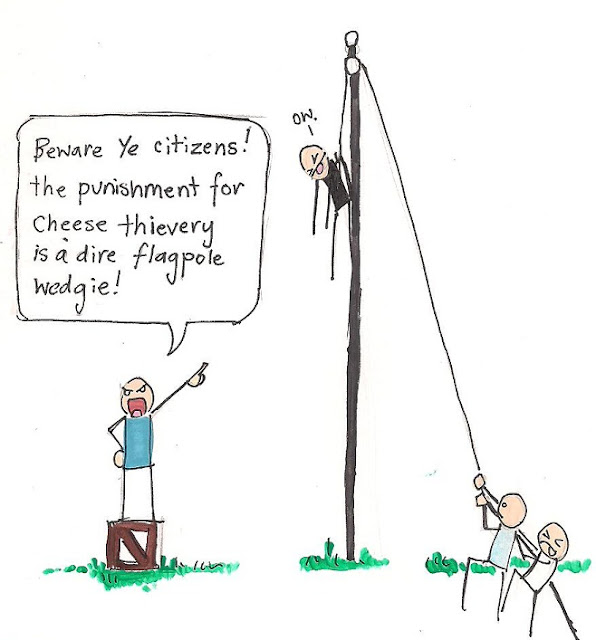 OW.
Beware Ye citizens!
the punishment for
Cheese thievery
is a dire flagpole
wedgie!